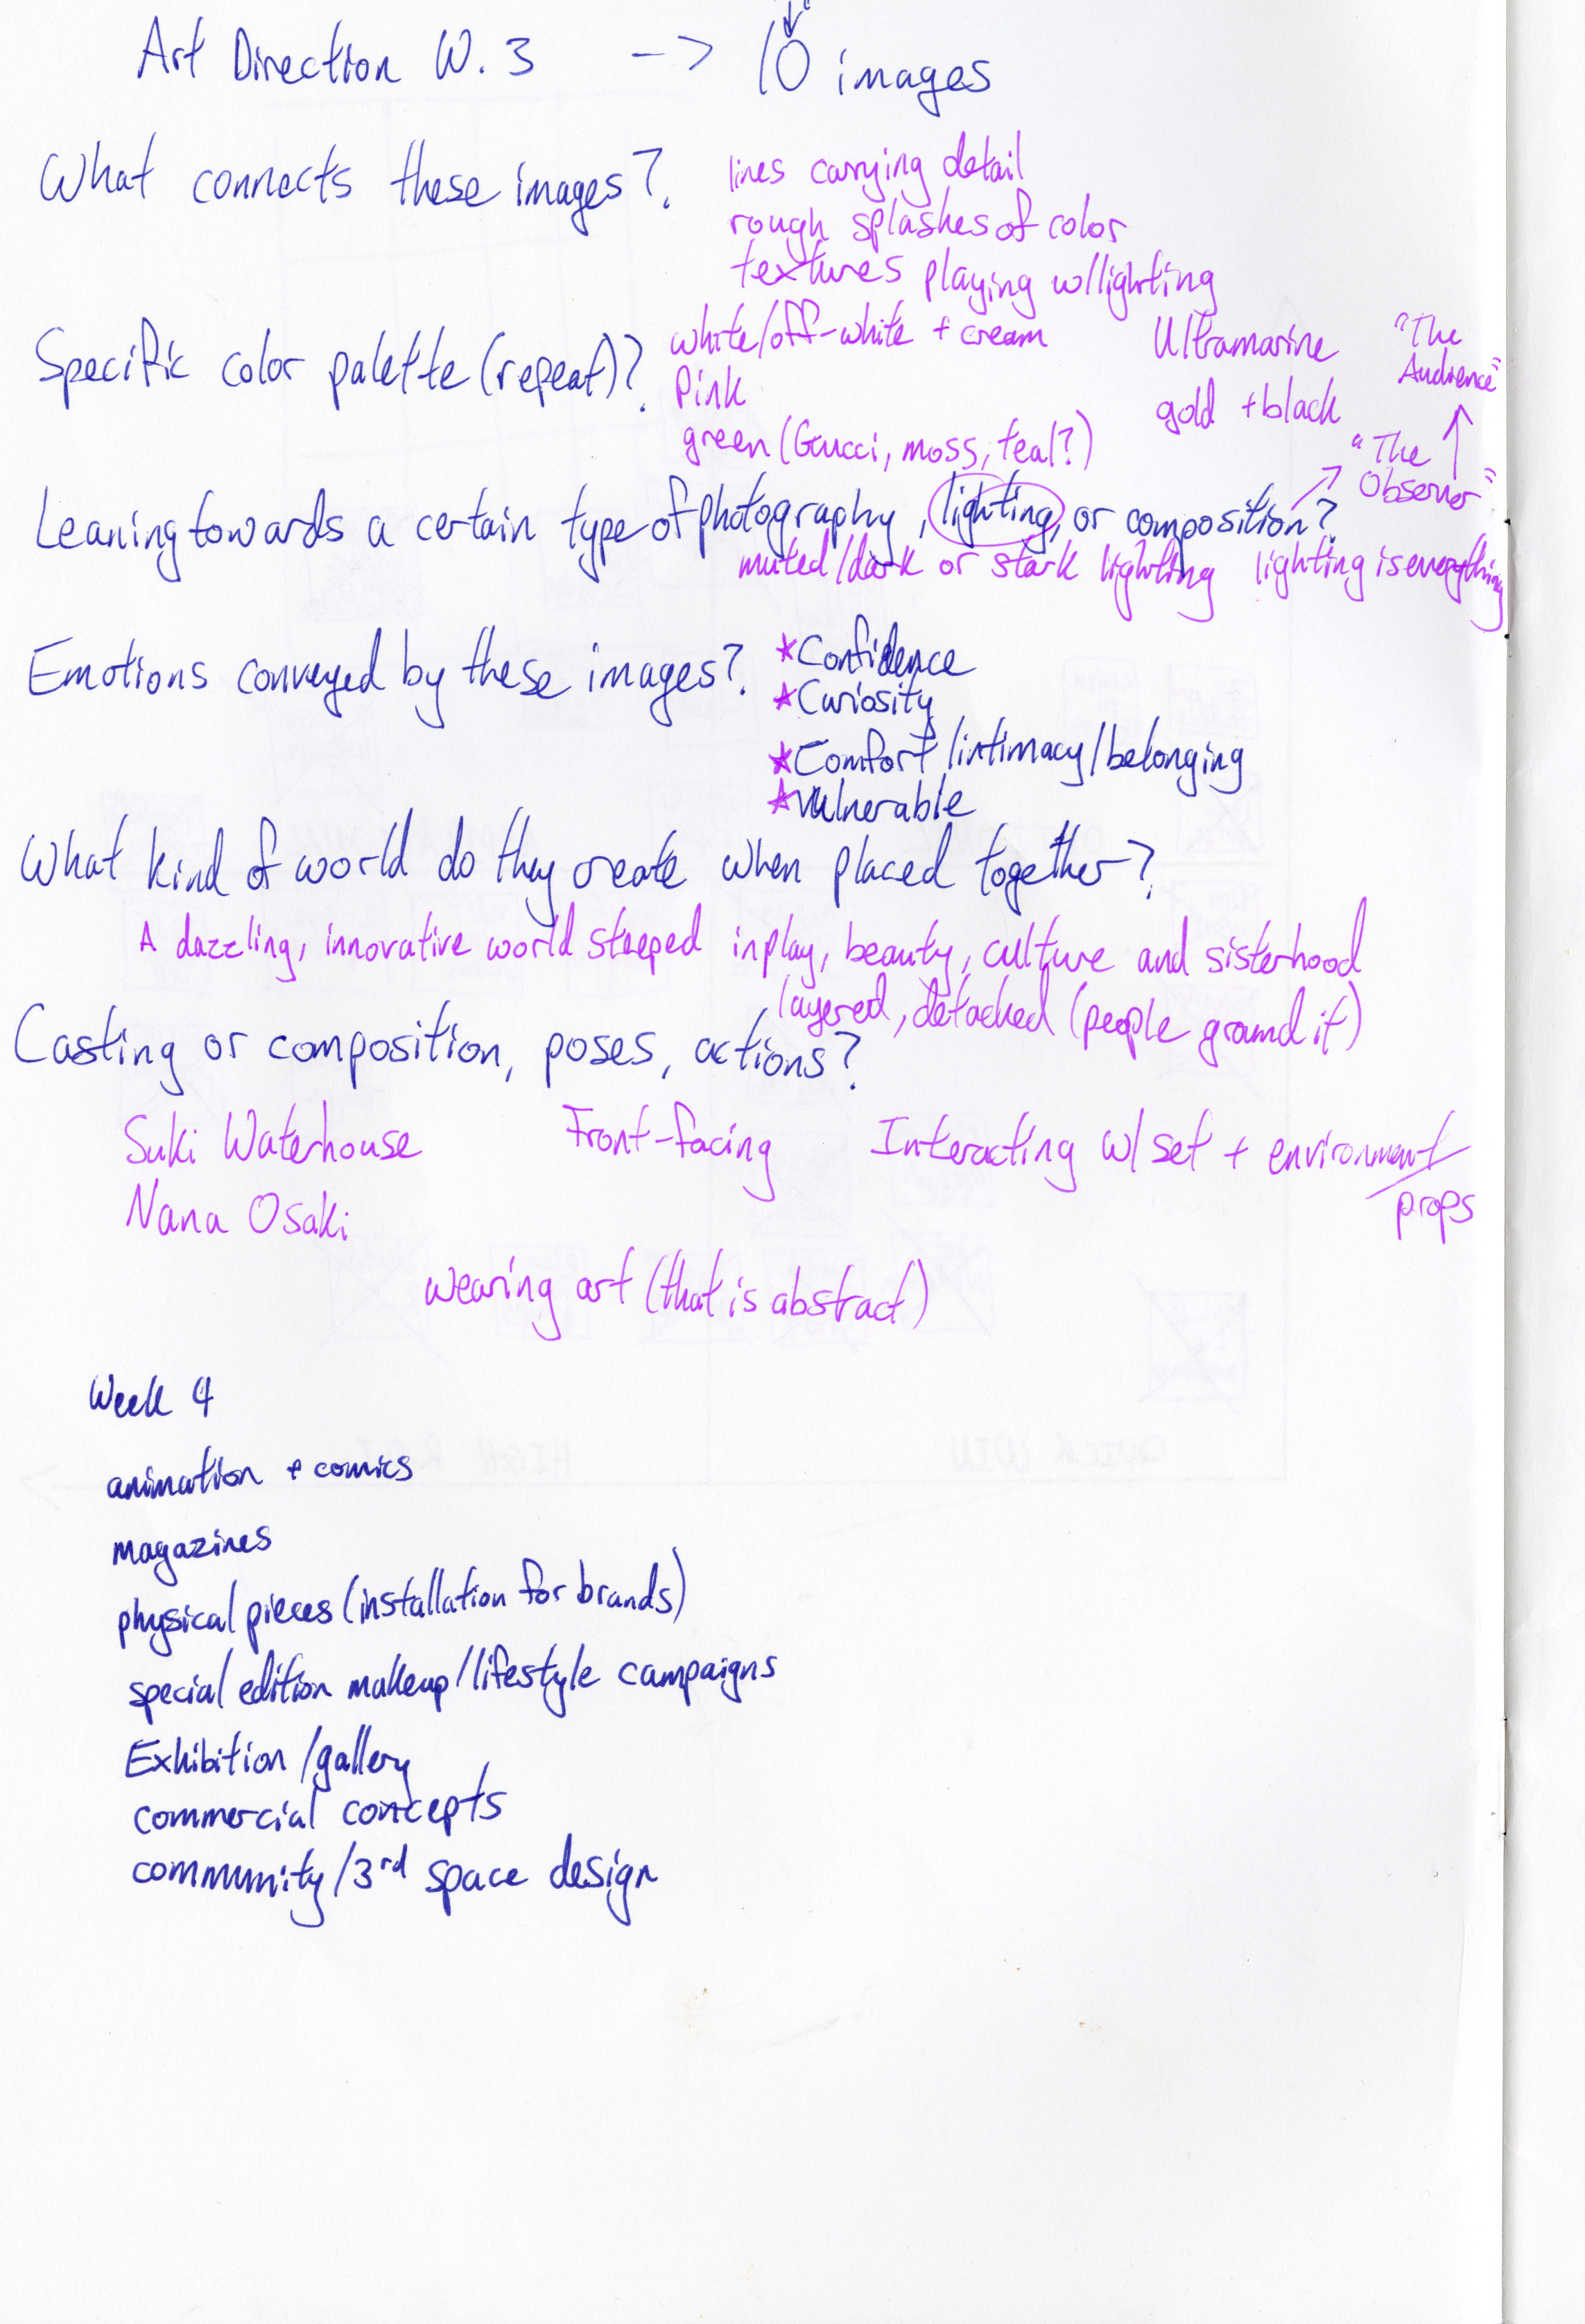 Art Direction W. 3 -> 10 images
What connects these images?
lines carrying detail
rough splashes of color
textures playing w/lighting
Specific color palette (repeat)?
white/off-white + cream
Pink
green (Gucci, moss, teal?)
Ultramarine
gold + black
"The Audience"
"The Observer"
Leaning towards a certain type of photography, lighting, or composition?
muted/dark or stark lighting
lighting is everything
Emotions conveyed by these images?
*Confidence
*Curiosity
*Comfort/intimacy/belonging
*vulnerable
What kind of world do they create when placed together?
A dazzling, innovative world steeped in play, beauty, culture and sisterhood
layered, detached (people ground it)
Casting or composition, poses, actions?
Suki Waterhouse
Nana Osaki
Front-facing
Interacting w/ set + environment/
props
wearing art (that is abstract)
Week 4
animation + comics
magazines
physical pieces (installation for brands)
special edition makeup/lifestyle campaigns
Exhibition/gallery
commercial concepts
community/3rd space design